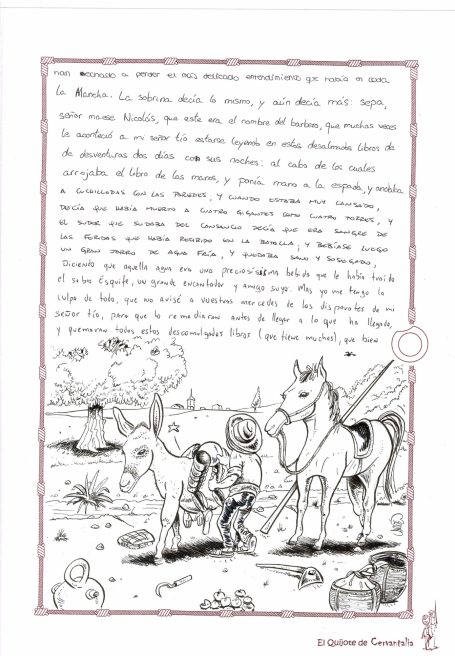 han echado a perder el más delicado entendimiento que había en toda
La Mancha. La sobrina decía lo mismo, y aún decía más: sepa,
señor maese Nicolás, que este era el nombre del barbero, que muchas veces
le aconteció a mi señor tío estarse leyendo en estos desalmados libros de
de desventuras dos días con sus noches: al cabo de los cuales
arrojaba el libro de las manos, y ponía mano a la espada, y andaba
A CUCHILLADAS CON LAS PAREDES; Y CUANDO ESTABA MUY CANSADO,
DECÍA QUE HABÍA MUERTO A CUATRO GIGANTES COMO CUATRO TORRES, Y
EL SUDOR QUE SUDABA DEL CANSANCIO DECÍA QUE ERA SANGRE DE
LAS FERIDAS QUE HABÍA RECIBIDO EN LA BATALLA; Y BEBÍASE LUEGO
UN GRAN JARRO DE AGUA FRÍA, Y QUEDABA SANO Y SOSEGADO,
Diciendo que aquella agua era una preciosísima bebida que le había traído
el sabio Esquife, un grande encantador y amigo suyo. Mas yo me tengo la
culpa de todo, que no avisé a vuestras mercedes de los disparates de mi
señor tío, para que lo remediaran antes de llegar a lo que ha llegado,
y quemaran todos estos descomulgados libros (que tiene muchos), que bien
El Quijote de Cervantalia